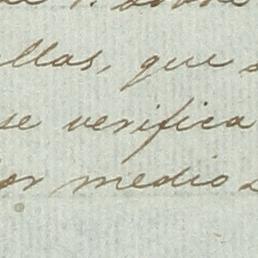 llas, que
se verifica
or medio